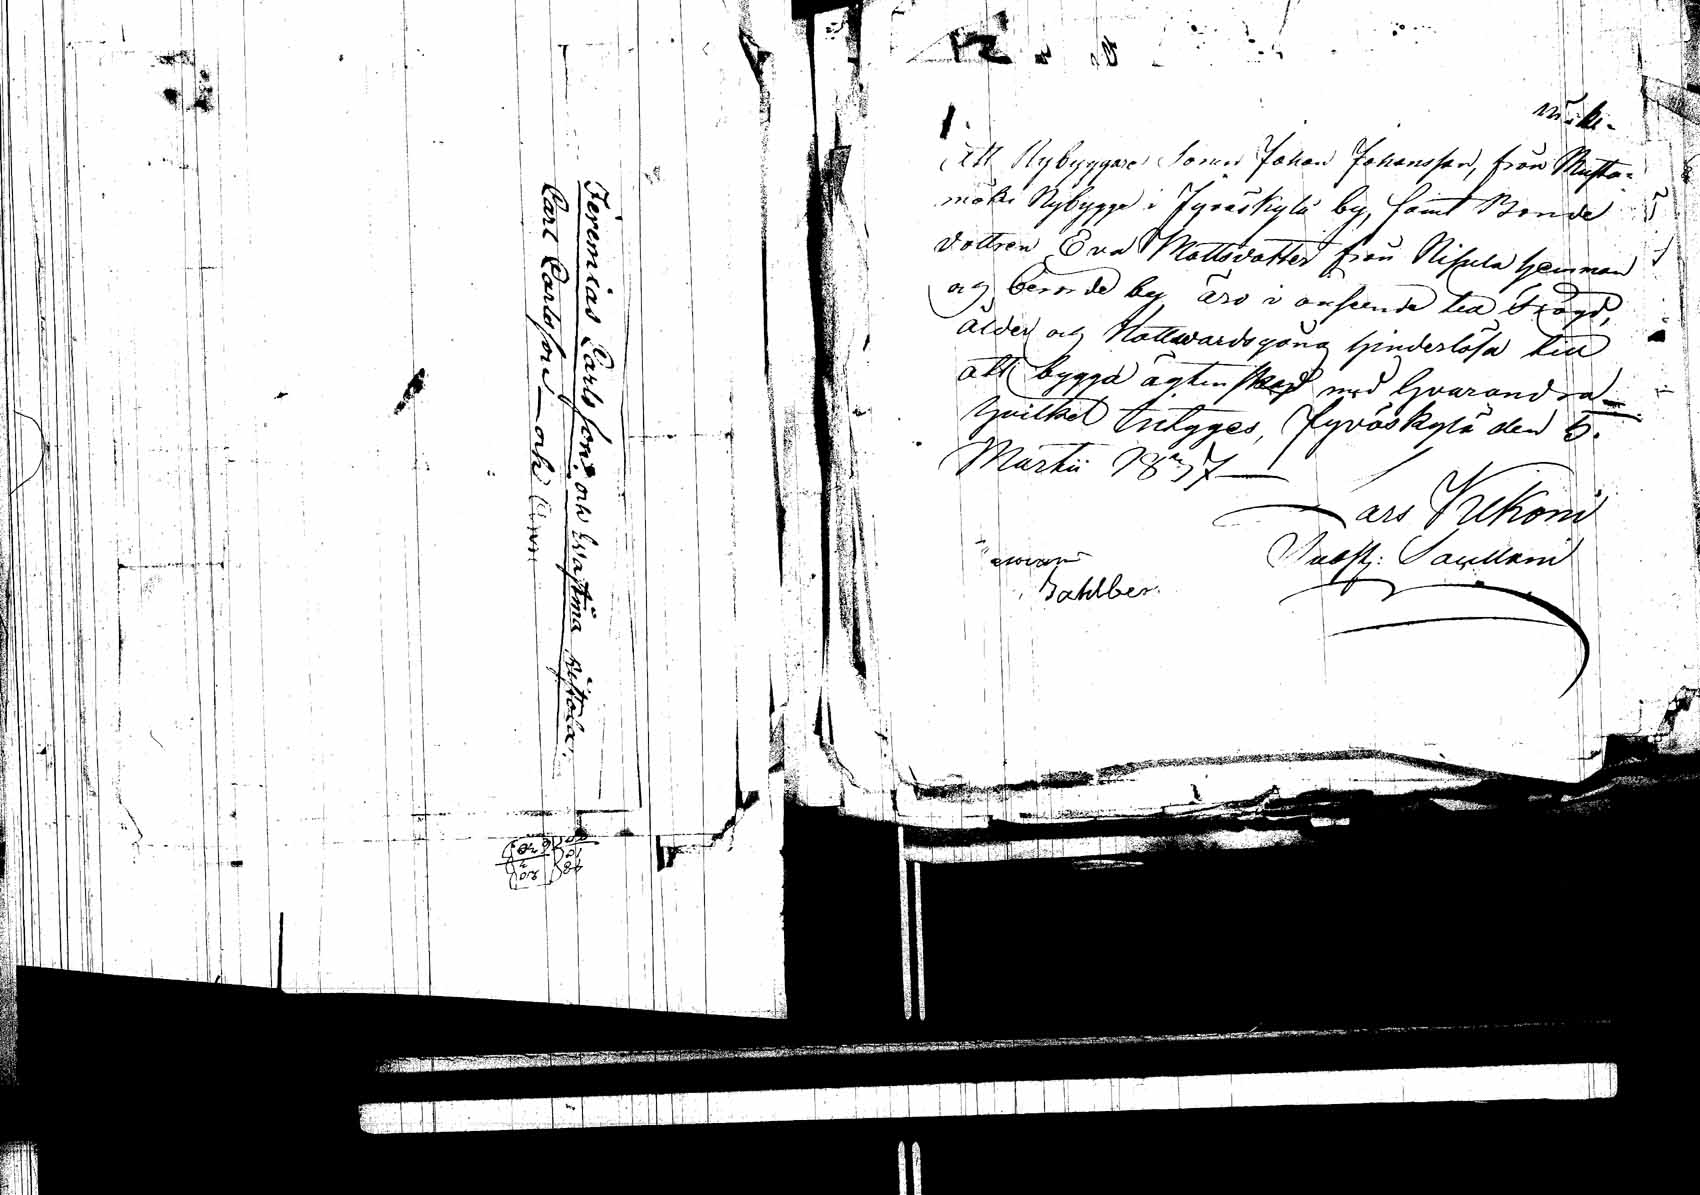 Jeremias Carlsson och Kristina
Carl Carlsson och
1.
Att Nybyggare Sonen Johan Johansson, från Musta-
mäki Nybygge i Jyväskylä by, samt Bonde
dottren Eva Mattsdotter från Nisula hemman
och berörde by äro i anseende till Skögd,
ålder och Nattvardsgång hinderlösa till
att bygga ägtenskap med hvarandra
hvilket intygges, Jyväskylä den 5.
Martii 1837
Lars Kukoni
Subst: Sacellani
Dahlber